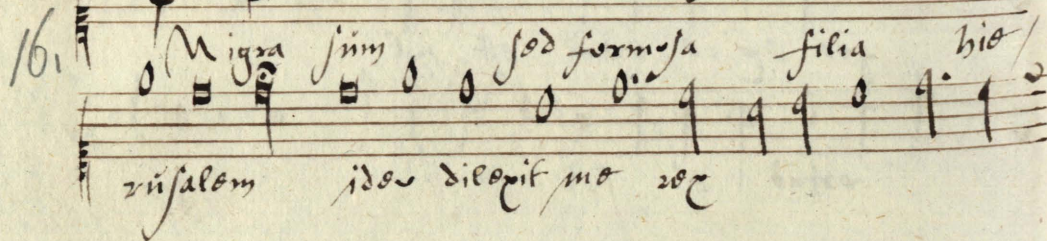 161
Nigra sum sed formosa filia hie/
rusalem ideo dilexit me rex